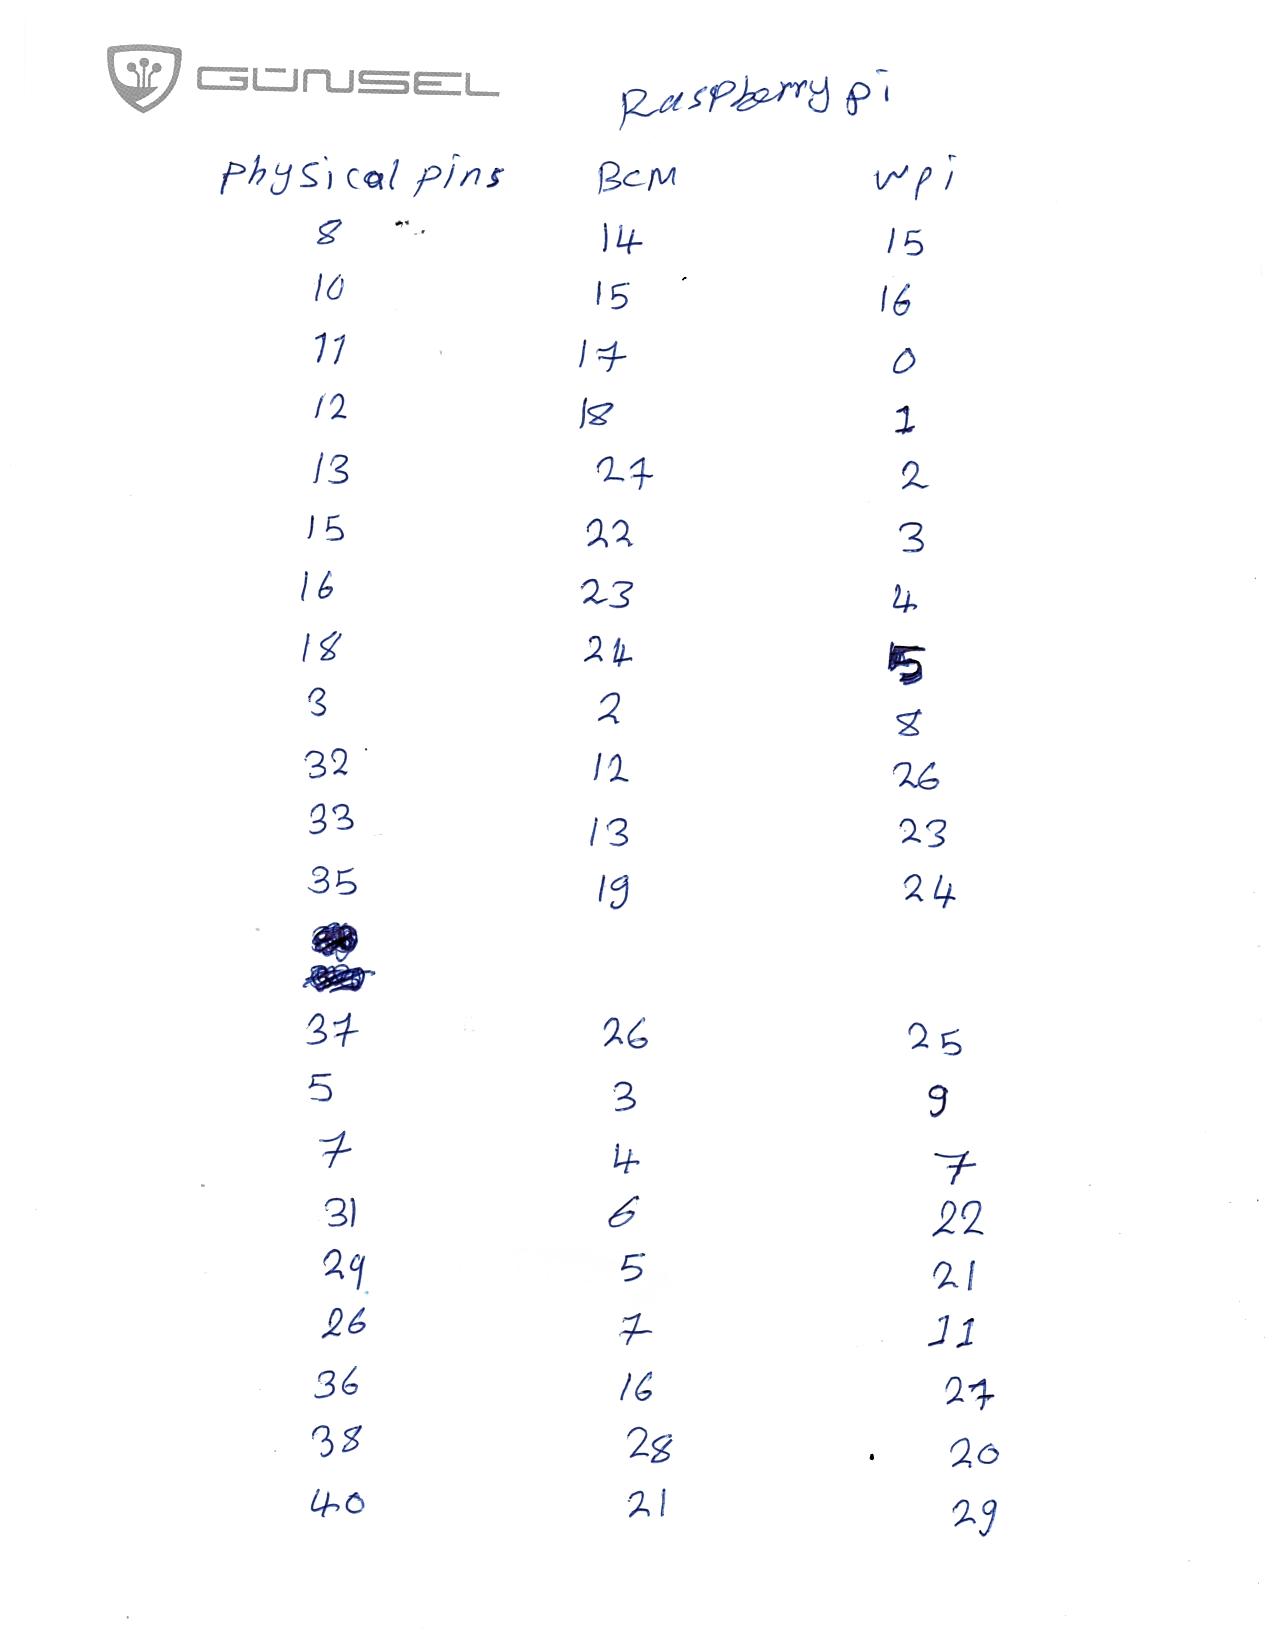 GÜNSEL
Raspberry pi
Physical pins BCM wpi
8 14 15
10 15 16
11 17 0
12 18 1
13 27 2
15 22 3
16 23 4
18 24 5
3 2 8
32 12 26
33 13 23
35 19 24
37 26 25
5 3 9
7 4 7
31 6 22
29 5 21
26 7 11
36 16 27
38 28 20
40 21 29